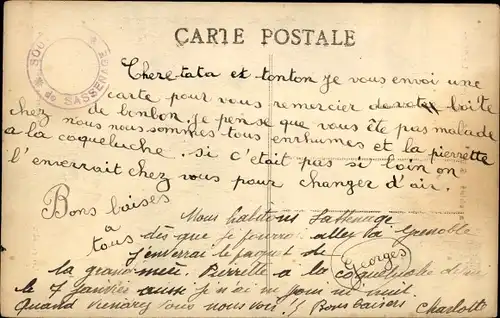 CARTE POSTALE
SOU
de SASSENAGE
Chere tata et tonton je vous envoi une
carte pour vous remercier de votre boite
de bonbon. je pense que vous ête pas malade
chez nous nous sommes tous enrhumes et la pierrette
a la coqueluche. si c'était pas si loin on
l'enverrait chez vous pour changer d'air.
Bons baises
a
tous
Georges
Nous habitons Sassenage
dès que je pourrai aller à Grenoble
j'enverai le paquet de
la grand-mère. Pierrette a la coqueluche depuis
le 7 janvier aussi je n'ai ni jour ni nuit.
Quand viendrez vous nous voir !! Bons baisers
Charlotte